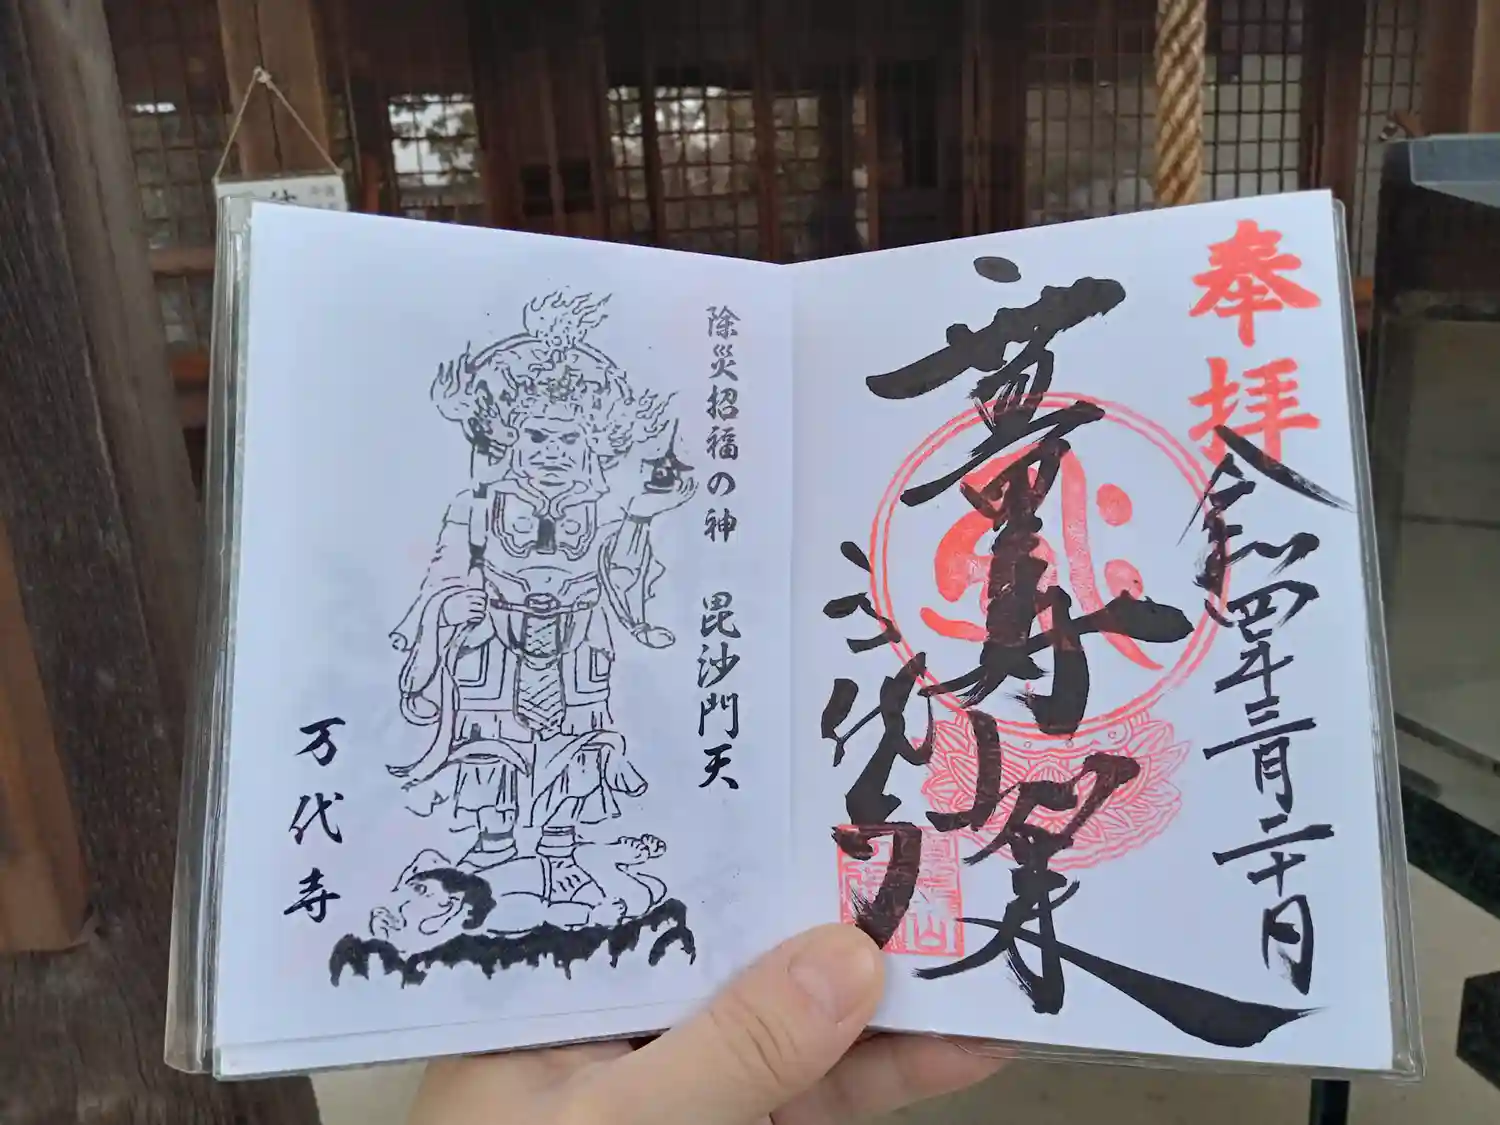 奉拝
令和四年三月二十日
無量寿如来
万代寺
除災招福の神 毘沙門天
万代寺